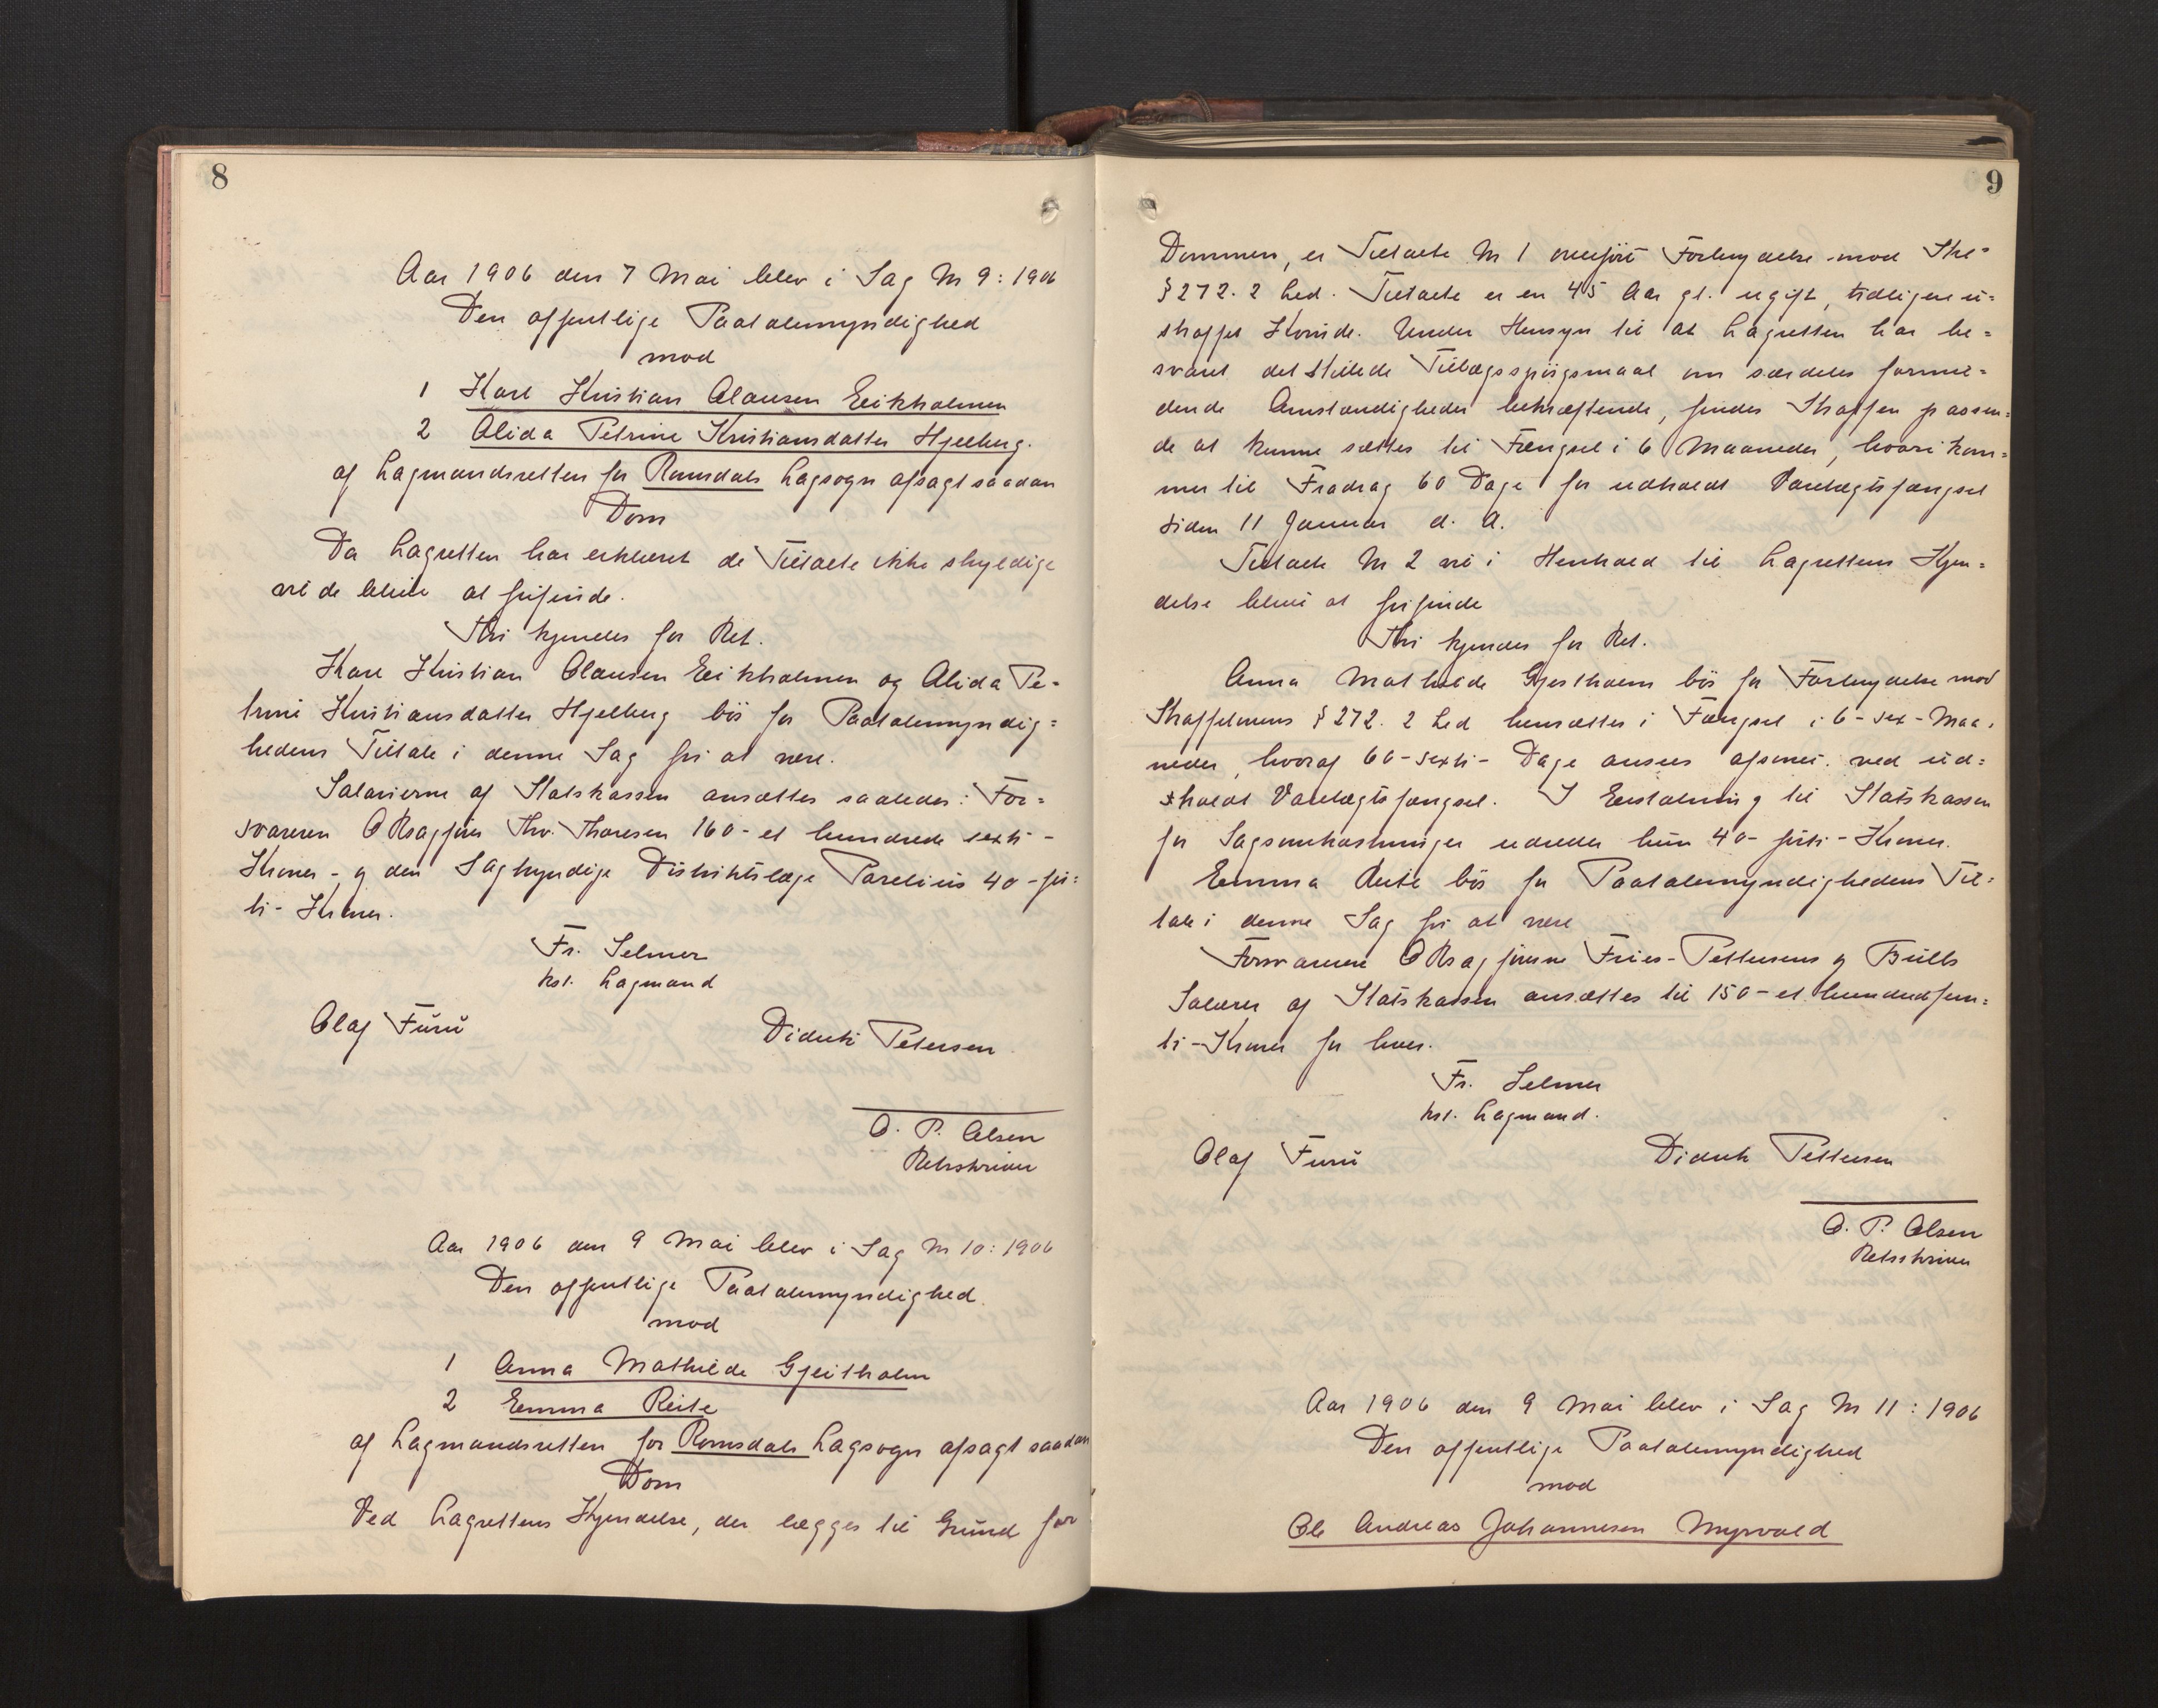 8
Aar 1906 den 7 Mai blev i Sag No 9: 1906
Den offentlige Paatalemyndighed
mod
1 Karl Kristian Olausen Eeikholmen
2 Alida Petrine Kristiansdatter Hjelberg.
af Lagmandsretten for Romsdals Lagsogn afsagt saadan
Dom
Da Lagretten har erklæret de Tiltalte ikke skyldige
vil de blive at frifinde.
Thi kjendes for Ret.
Karl Kristian Olausen Eeikholmen og Alida Pe-
trine Kristiansdatter Hjelberg bör for Paatalemyndig=
hedens Tiltale i denne Sag fri at være.
Salarierne af Statskassen ansættes saaledes: For=
svareren ORsagförer Thv. Thoresen 160 - et hundrede sexti -
Kroner - og den Sagkyndige Distriktslæge Parelius 40 -för=
ti - Kroner.
Fr. Selmer
kst. Lagmand
Olaf Furu Didrik Petersen
O. P. Olsen
Retsskriver
Aar 1906 den 9 Mai blev i Sag No 10: 1906
Den offentlige Paatalemyndighed
mod
1 Anna Mathilde Gjeitholm
2 Emma Reite
af Lagmandsretten for Romsdals Lagsogn afsagt saadan
Dom
Ved Lagrettens Kjendelse, der lægges til Grund for
9
Dommen, er Tiltalte No 1 overfört Forbrydelse mod Stl=
§ 272. 2 Led. Tiltalte er en 45 Aar gl. ugift, tidligere u=
straffet Kvinde. Under Hensyn til at Lagretten har be=
svaret det stillede Tillægsspörgsmaal om særdeles formil=
dende Omstændigheder bekræftende, findes Straffen passen=
de at kunne sættes til Fængsel i 6 Maaneder, hvori kom=
mer til Fradrag 60 Dage for udholdt Varetægtsfængsel
siden 11 Januar d. A.
Tiltalte No 2 vil i Henhold til Lagrettens Kjen=
delse blive at frifinde
Thi kjendes for Ret.
Anna Mathilde Gjeitholm bör for Forbrydelse mod
Straffelovens § 272. 2 Led hensættes i Fængsel i 6 - sex - Maa=
neder, hvoraf 60 - sexti - Dage ansees afsonet ved ud=
holdt Varetægtsfængsel. I Erstatning til Statskassen
for Sagsomkostninger udreder hun 40 - förti - Kroner.
Emma Reite bör for Paatalemyndighedens Til=
tale i denne Sag fri at være
Forsvarerne ORsagförerne Fries-Pettersens og Bulls
Salærer af Statskassen ansættes til 150 - et hundredfem=
ti - Kroner for hver.
Fr. Selmer
kst. Lagmand.
Olaf Furu Didrik Pettersen
O. P. Olsen
Retsskriver
Aar 1906 den 9 Mai blev i Sag No 11: 1906
Den offentlige Paatalemyndighed
mod
Ole Andreas Johannesen Myrvold